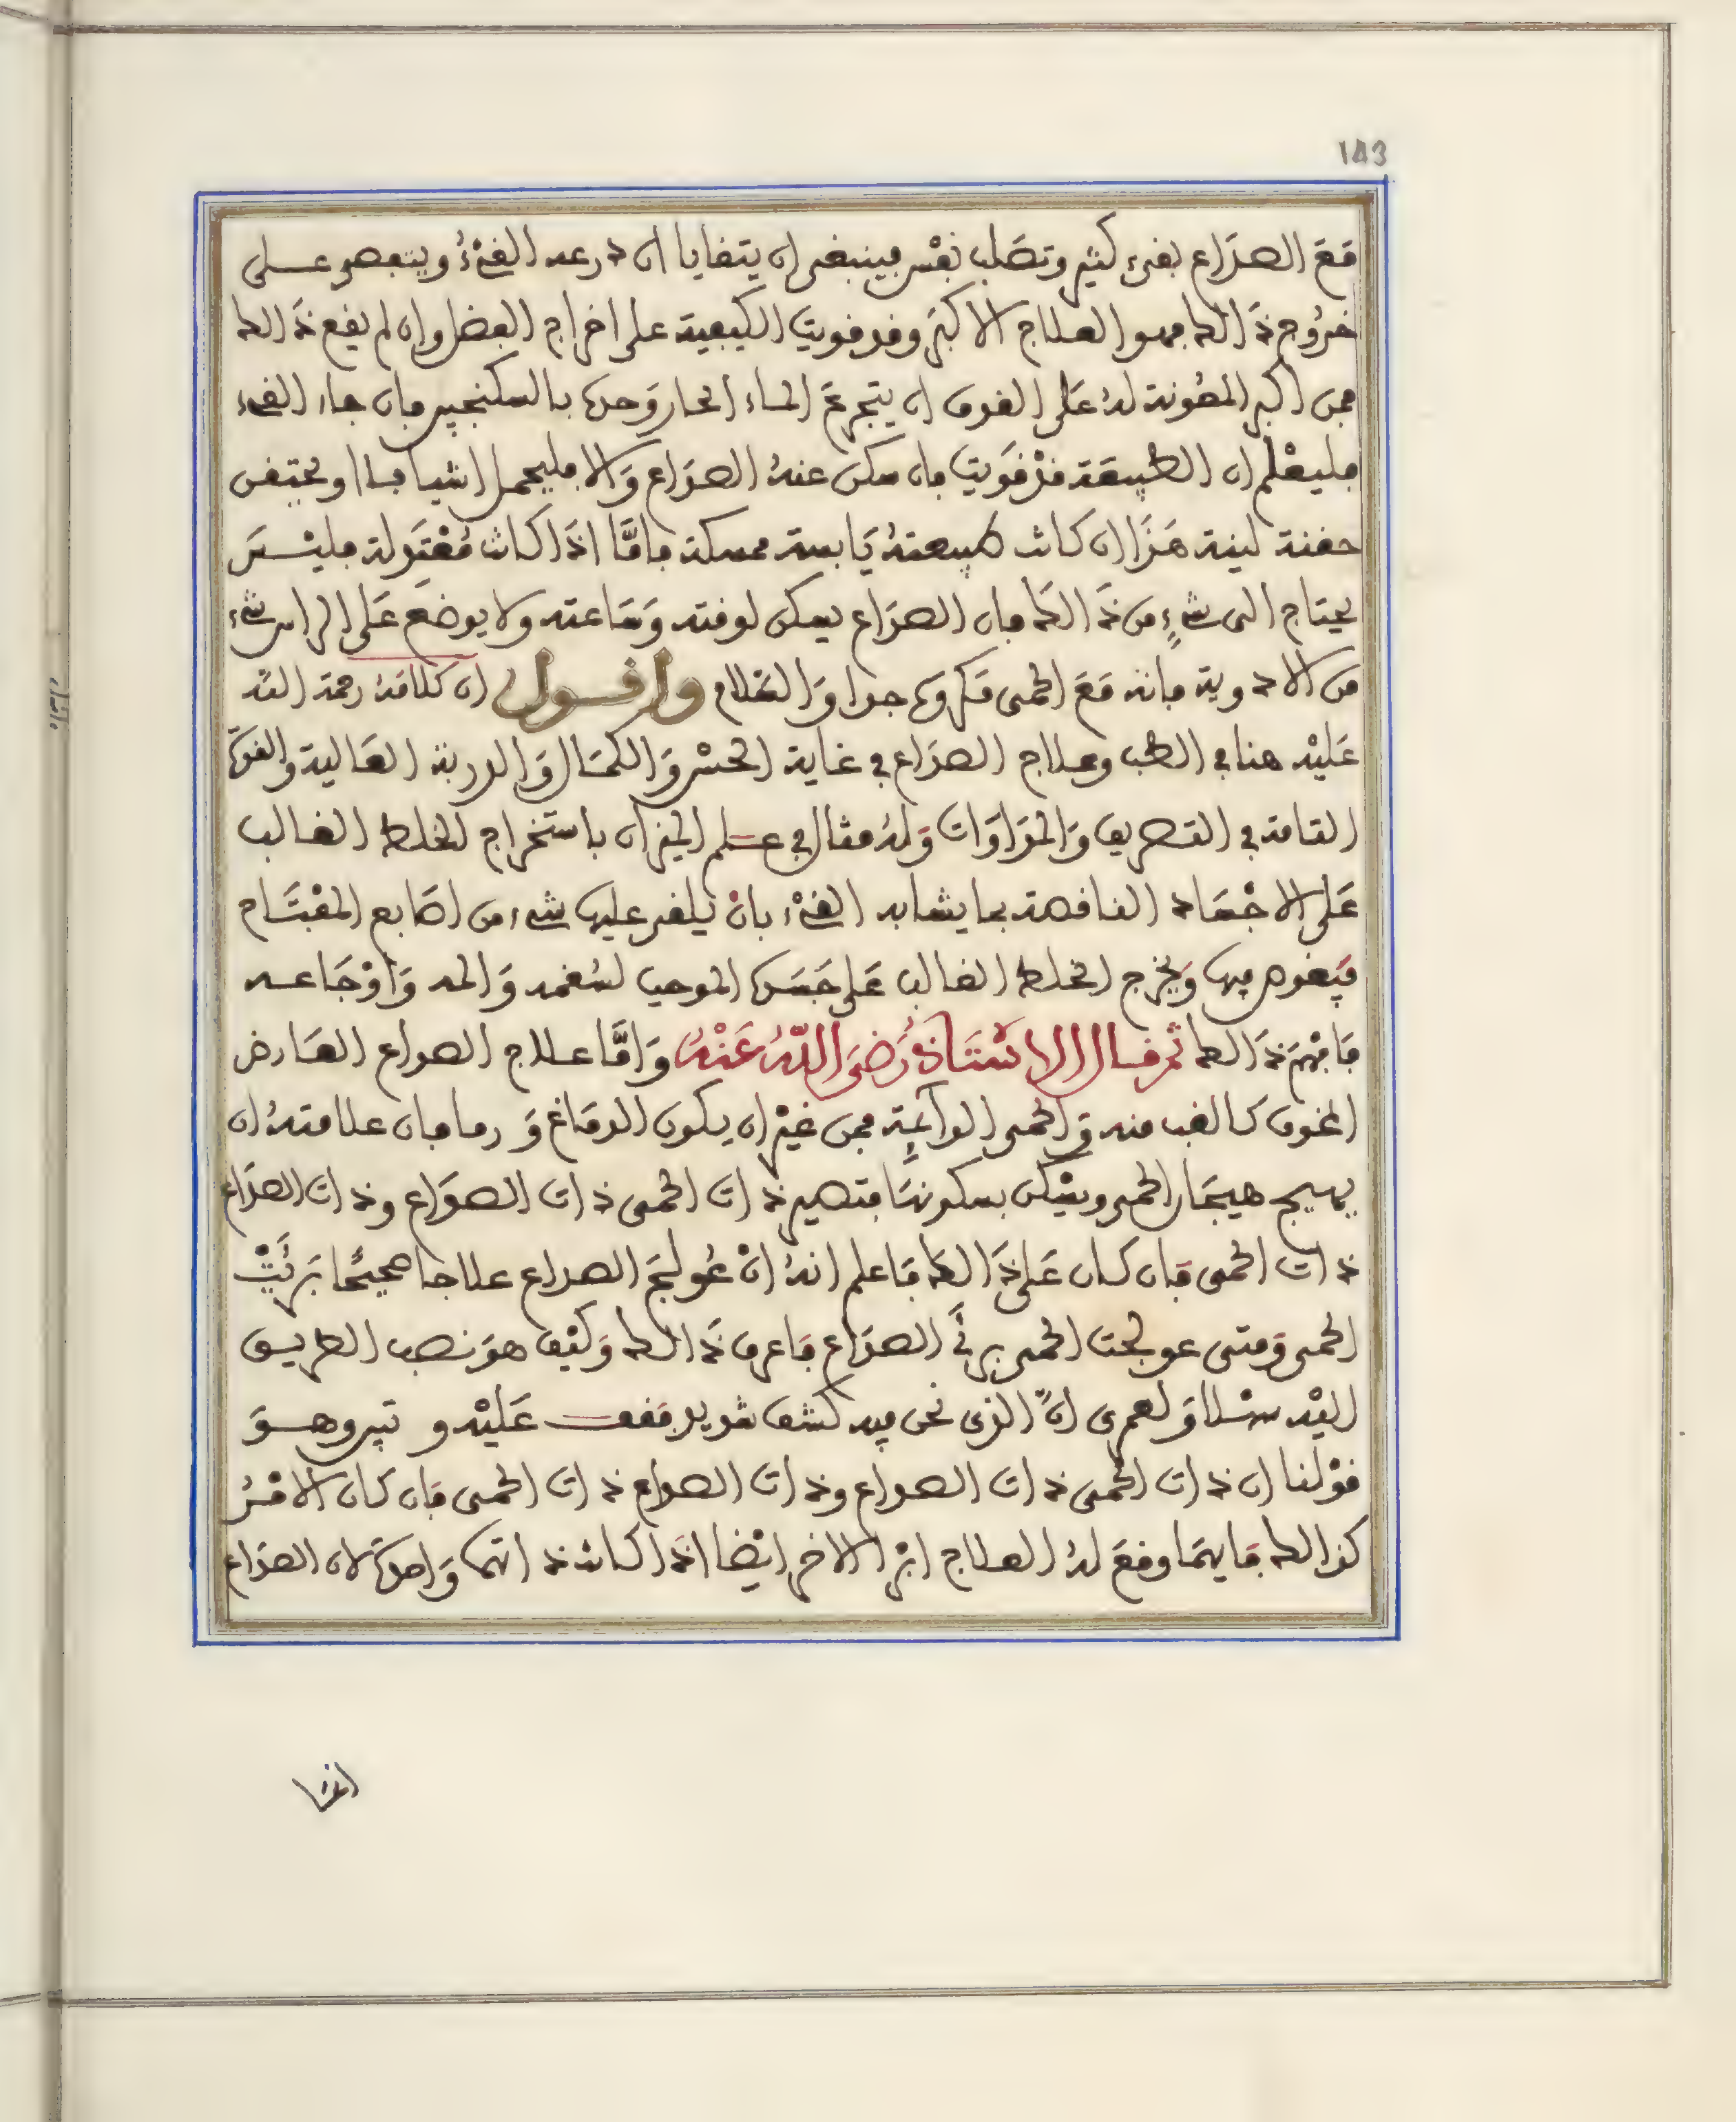 143
مع الصداع بقيء كثير وتصلب نفس فينبغي ان يتقايا ان ذرعه القيء ويتفصى على
خروج ذالك فهو العلاج الاكبر وقد قويت الكيفية على اخراج الفضل وان لم يقع ذالك
فمن اكبر المعونة له على القوى ان يتجرع الماء الحار وحده بالسكنجبير فان جاء القيء
فليعلم ان الطبيعة قد قويت فان سكن عنه الصداع والا فليحمل اشيافا او يحتقن
حقنة لينة هذا ان كانت طبيعته يابسة ممسكة فاما اذا كانت معتدلة فليس
يحتاج الى شيء من ذالك فان الصداع يسكن لوقته وساعته ولا يوضع على الراس شيء
من الادوية فانه مع الحمى مكروه جدا والسلام واقول ان كلامه رحمة الله
عليه هنا في الطب وعلاج الصداع في غاية الحسن والكمال والدربة العالية والقوة
التامة في التصريف والمداوات وله مثال في علم الميزان باستخراج الخلط الغالب
على الاجساد الناقصة بما يشابه القيء بان يلقى عليها شيء من اصابع المقتام
فيغوص فيها ويخرج الخلط الغالب على جسده الموجب لسقمه والمه واوجاعه
فافهم ذالك ثم قال الاستاذ رضي الله عنه واما علاج الصداع العارض
المخوف كالغب منه والحمى الدائمة فمن غير ان يكون الدماغ ورما فان علامته ان
يهيج هيجان الحمى ويسكن بسكونها فتصير ذات الحمى ذات الصداع وذات الصداع
ذات الحمى فان كان على ذالك فاعلم انه ان عولج الصداع علاجا صحيحا برئت
الحمى ومتى عولجت الحمى برئ الصداع فاعرف ذالك وكيف هو نصب الطريق
اليه سهلا ولعمري ان الذي نحن فيه كشف شديد فقف عليه و تبر وهو
قولنا ان ذات الحمى ذات الصداع وذات الصداع ذات الحمى فان كان الامر
كذالك فايهما وقع له العلاج ابرا الاخر ايضا اذا كانت ذاتهما واحدة لان الصداع
انما